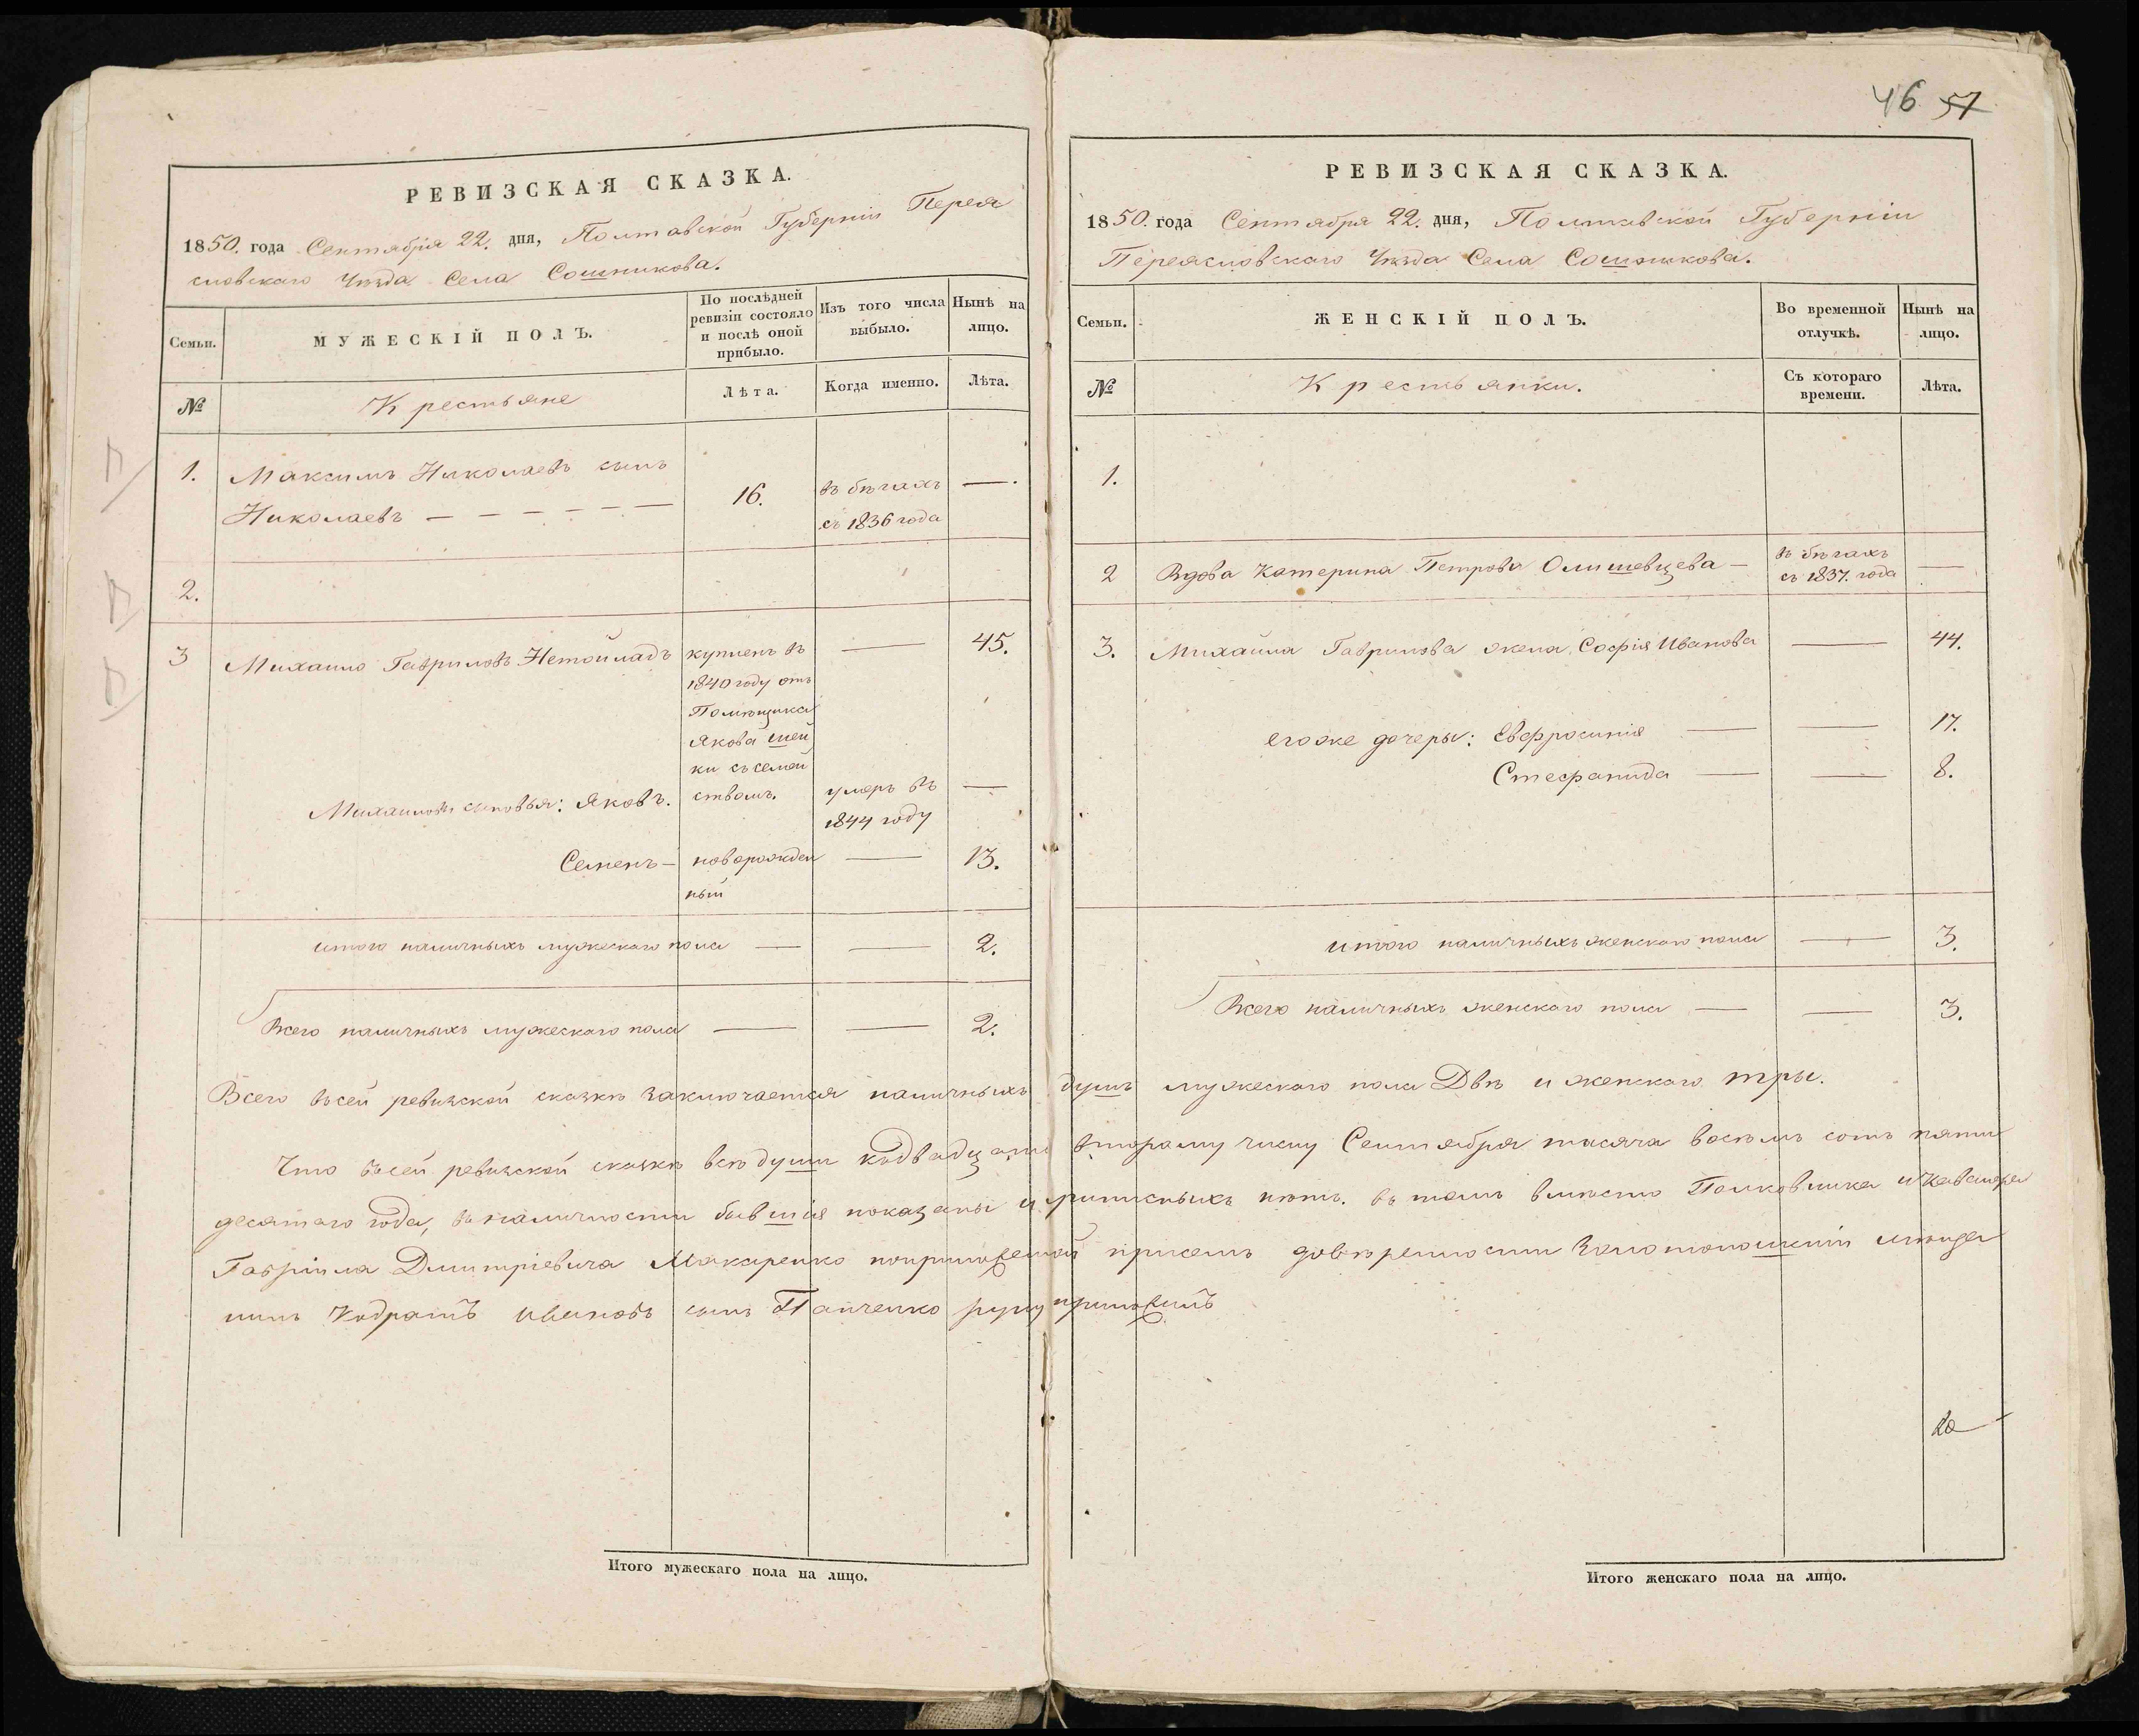 46 57
РЕВИЗСКАЯ СКАЗКА.
1850. года Сентября 22. дня, Полтавской Губерніи Перея
словскаго Уѣзда Села Сошникова.
Семьи.
МУЖЕСКІЙ ПОЛЪ.
По послѣдней
ревизіи состояло
и послѣ оной
прибыло.
Изъ того числа
выбыло.
Нынѣ на
лицо.
№
Крестьяне
Лѣта.
Когда именно.
Лѣта.
1.
Максимъ Николаевъ сынъ
Николаевъ — — — — — —
16.
въ бѣгахъ
съ 1836 года
—
2.
3
Михаило Гавриловъ Нетойладъ
купленъ въ
1840 году отъ
Помѣщика
Якова Шей
ки съ семей
ствомъ.
—
45.
Михаиловы сыновья: Яковъ.
умеръ въ
1844 году
—
Семенъ —
новорожден
ный
—
13.
итого наличныхъ мужескаго пола — — 2.
Всего наличныхъ мужескаго пола — — 2.
РЕВИЗСКАЯ СКАЗКА.
1850. года Сентября 22. дня, Полтавской Губерніи
Переясловскаго Уѣзда Села Сошникова.
Семьи.
ЖЕНСКІЙ ПОЛЪ.
Во временной
отлучкѣ.
Нынѣ на
лицо.
№
Крестьянки.
Съ котораго
времени.
Лѣта.
1.
2
Вдова Катерина Петрова Олишевцева —
въ бѣгахъ
съ 1837. года
—
3.
Михайла Гаврилова жена София Иванова — 44.
егоже дочеры: Евфросинія — — 17.
Стефанида — — 8.
итого наличныхъ женскаго пола — 3.
Всего наличныхъ женскаго пола — — 3.
Всего въсей ревизской сказкѣ заключается наличныхъ душъ мужескаго пола Двѣ и женскаго тры.
Что въсей ревизской сказкѣ всѣ души къдвадцать второму числу Сентября тисяча восемъ сотъ пяти
десятаго года, въ наличности бывшія показаны и прописныхъ нѣтъ. въ томъ вмѣсто Полковника и Кавалера
Гавріила Дмитріевича Макаренко поприложенной присемъ довѣренности Золотоношскій мѣщ
нинъ Кодратъ Ивановъ сынъ Панченко руку приложилъ
Итого мужескаго пола на лицо.
Итого женскаго пола на лицо.